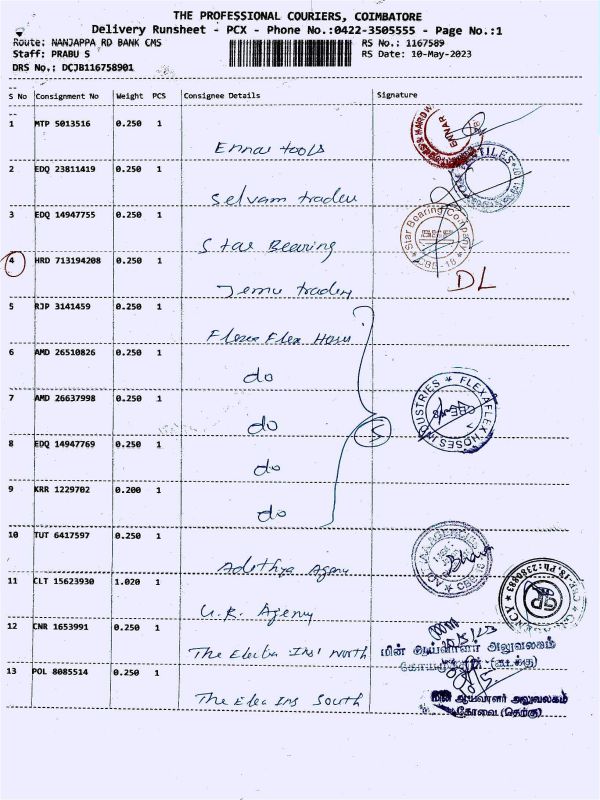 THE PROFESSIONAL COURIERS, COIMBATORE
Delivery Runsheet - PCX - Phone No.:0422-3505555 - Page No.:1
Route: NANJAPPA RD BANK CMS
RS No.: 1167589
Staff: PRABU S
RS Date: 10-May-2023
DRS No.: DCJB116758901
S No Consignment No Weight PCS Consignee Details Signature
1 MTP 5013516 0.250 1 Ennar tools
2 EDQ 23811419 0.250 1 Selvam traders
3 EDQ 14947755 0.250 1 Star Bearing
Star Bearing Company
CBE-18
4 HRD 713194208 0.250 1 traders
DL
5 RJP 3141459 0.250 1 Flex
6 AMD 26510826 0.250 1 do
7 AMD 26637998 0.250 1 do
FLEXAFLEX HOSES INDUSTRIES
5
8 EDQ 14947769 0.250 1 do
9 KRR 1229702 0.200 1 do
10 TUT 6417597 0.250 1 Adithya Agency
CBE-18
11 CLT 15623930 1.020 1 U.R. Agency
12 CNR 1653991 0.250 1 The Electra Ins' North
மின் ஆய்வாளர் அலுவலகம்
(வடக்கு)
13 POL 8085514 0.250 1 The Elec Ins South
மின் ஆய்வாளர் அலுவலகம்
கோவை (தெற்கு)